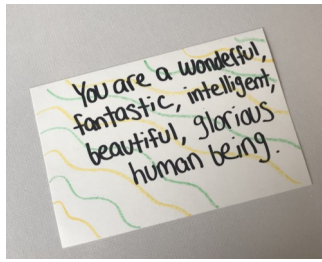 You are a wonderful,
fantastic, intelligent,
beautiful, glorious
human being.